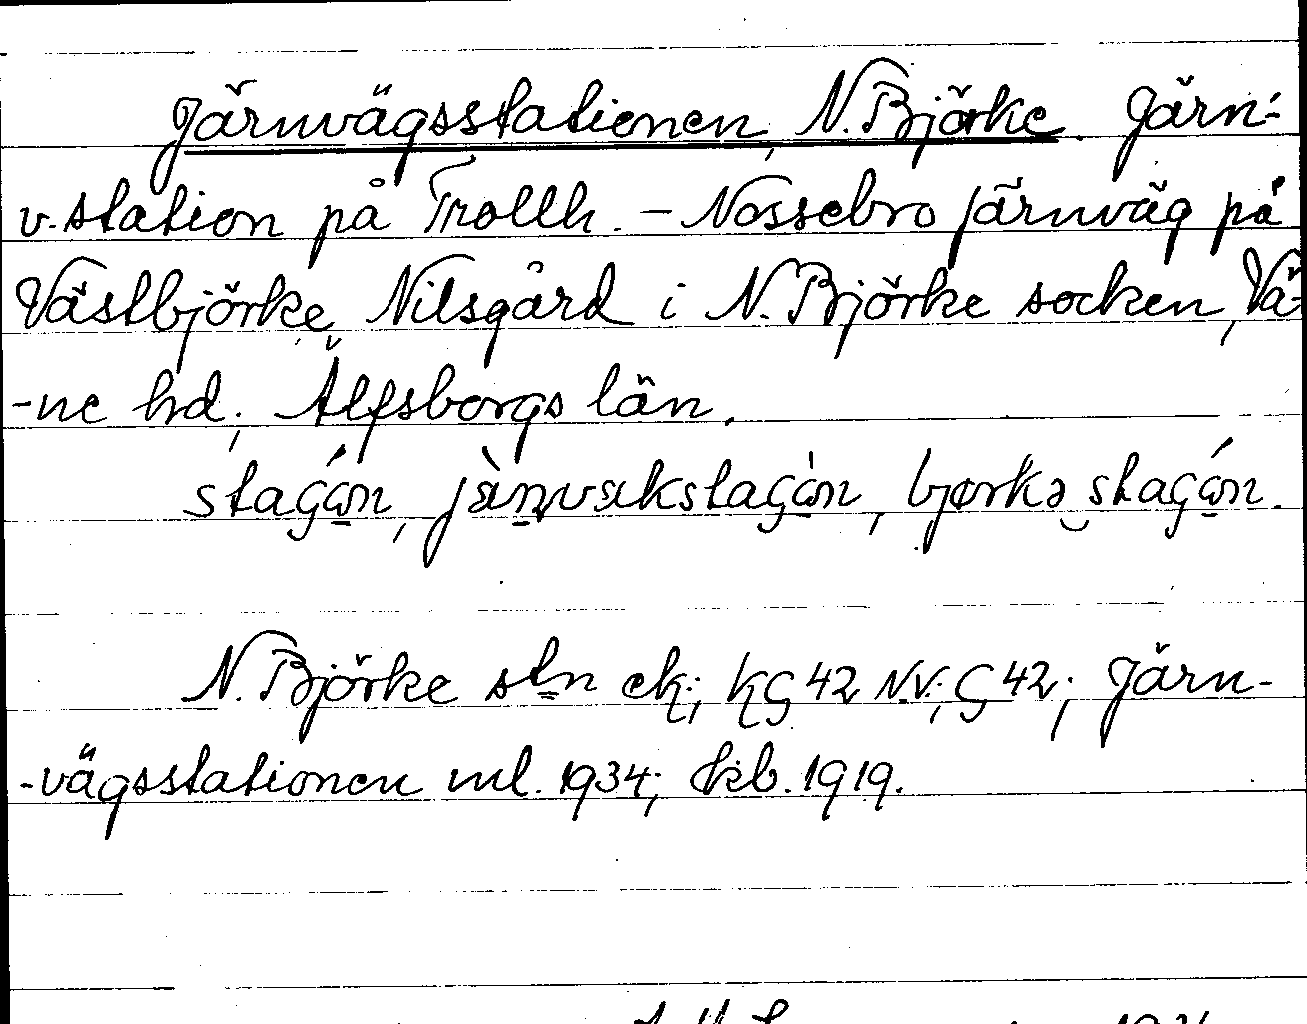 Järnvägsstationen, N. Björke. Järn-
v.station på Trollh. – Nossebro järnväg på
Västbjörke, Nilsgård i N. Björke socken, Vä-
-ne hd; Älfsborgs län.
N. Björke stn ek; kG 42 NV; G 42; Järn-
-vägsstationen ml. 1934; kb. 1919.